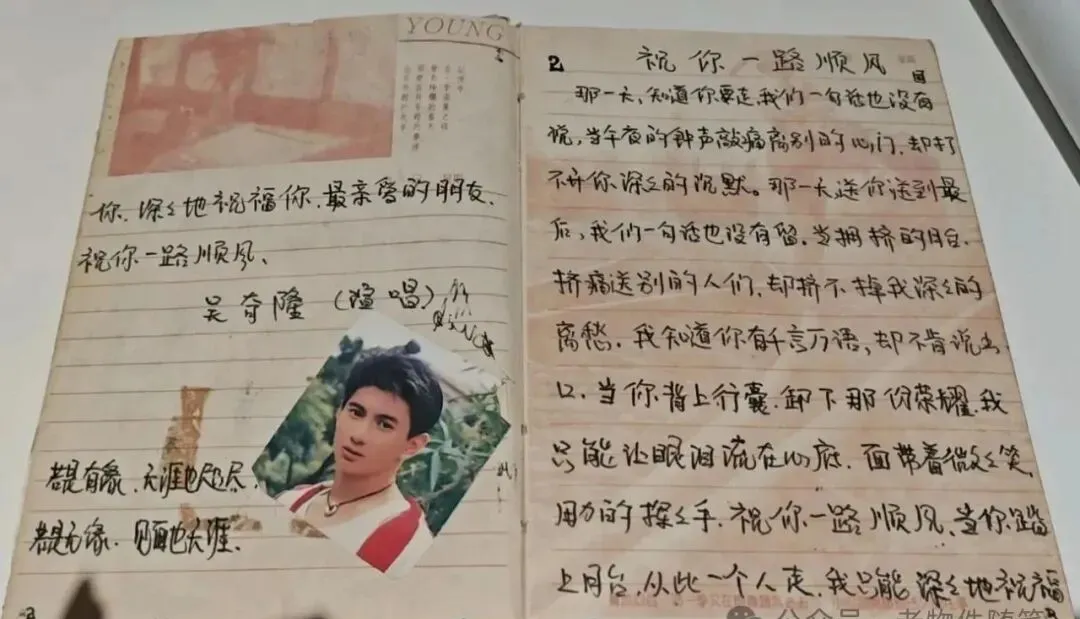 YOUNG
你.深々地祝福你.最亲爱的朋友.
祝你一路顺风、
吴奇隆（演唱）
若是有缘.天涯也咫尺.
若是无缘.见面也天涯.
2 祝你一路顺风
那一天,知道你要走,我们一句话也没有
说,当午夜的钟声敲痛离别的心门,却打
不开你深々的沉默。那一天送你送到最
后,我们一句话也没有留.当拥挤的月台.
挤痛送别的人们,却挤不掉我深々的
离愁.我知道你有千言万语,却不肯说出
口.当你背上行囊.卸下那份荣耀.我
只能让眼泪流在心底.面带着微々笑.
用力的挥々手.祝你一路顺风.当你踏
上月台.从此一个人走.我只能深々地祝福
公众号 老物件随笔